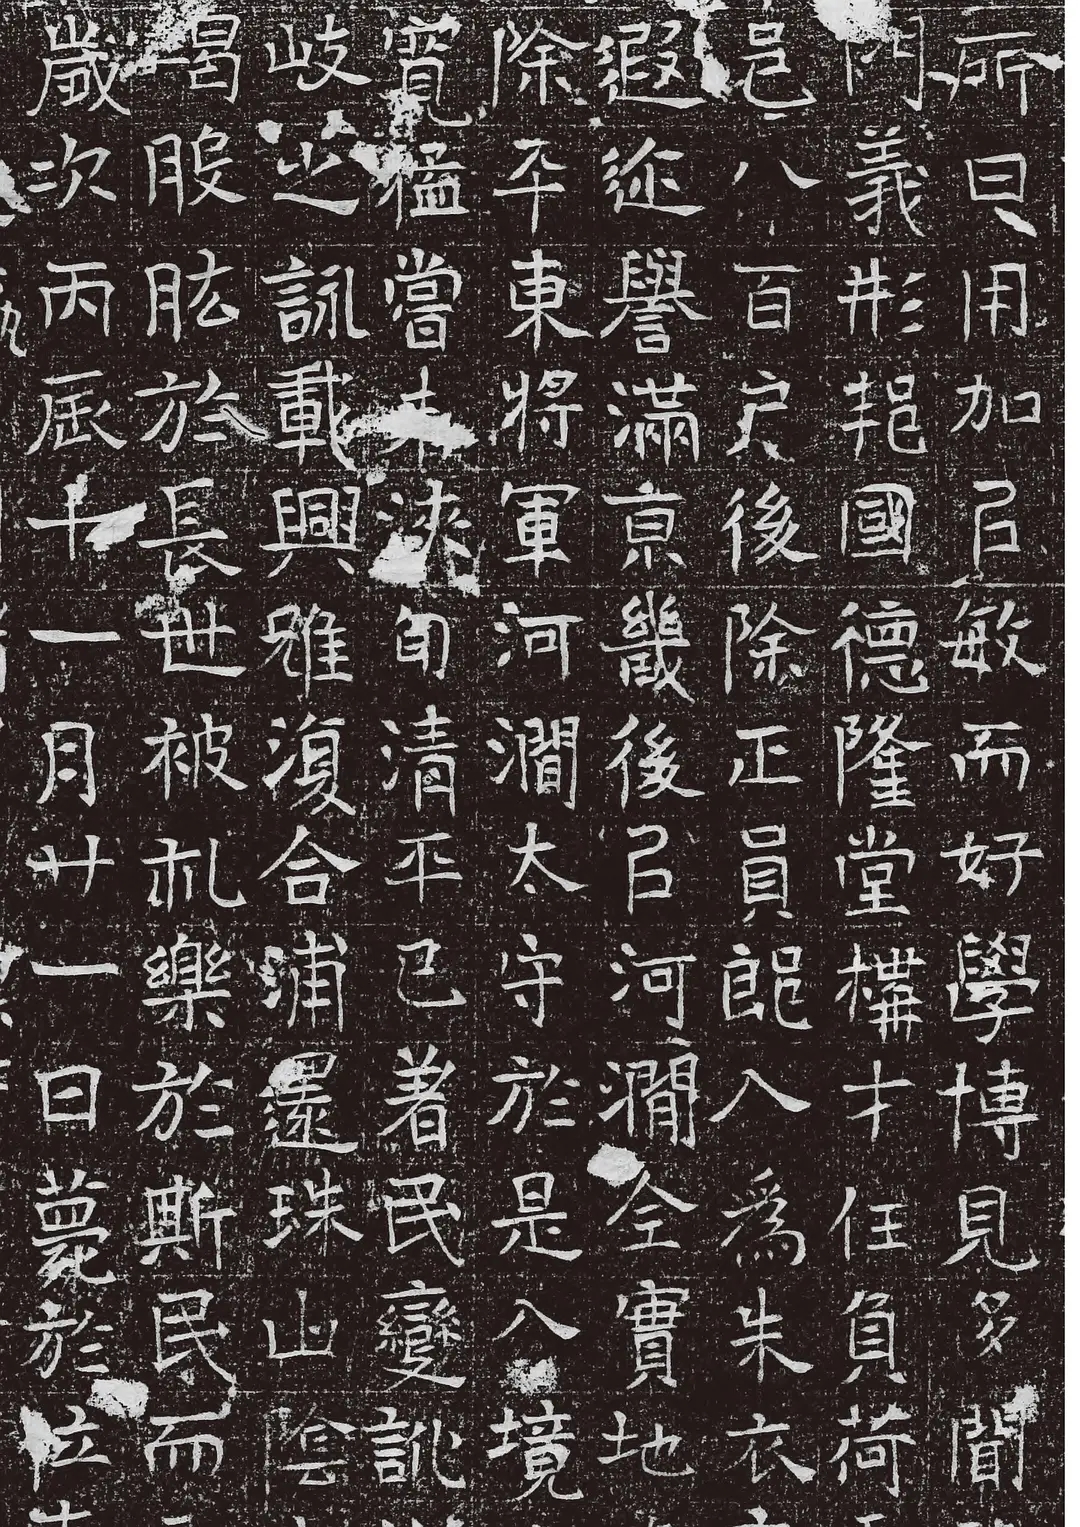 所曰用加㠯敏而好學博見多聞
門義形邦國德隆堂構才任負荷
邑八百戶後除正員郎入為朱衣
遐迩譽滿京畿後㠯河澗全實地
除平東將軍河澗太守於是入境
寬猛當未浹旬清平已著民變訛
岐之詠載興雖復合浦還珠山陰
曷股肱於長世被禮樂於斯民而
歲次丙辰十一月廿一日薨於位